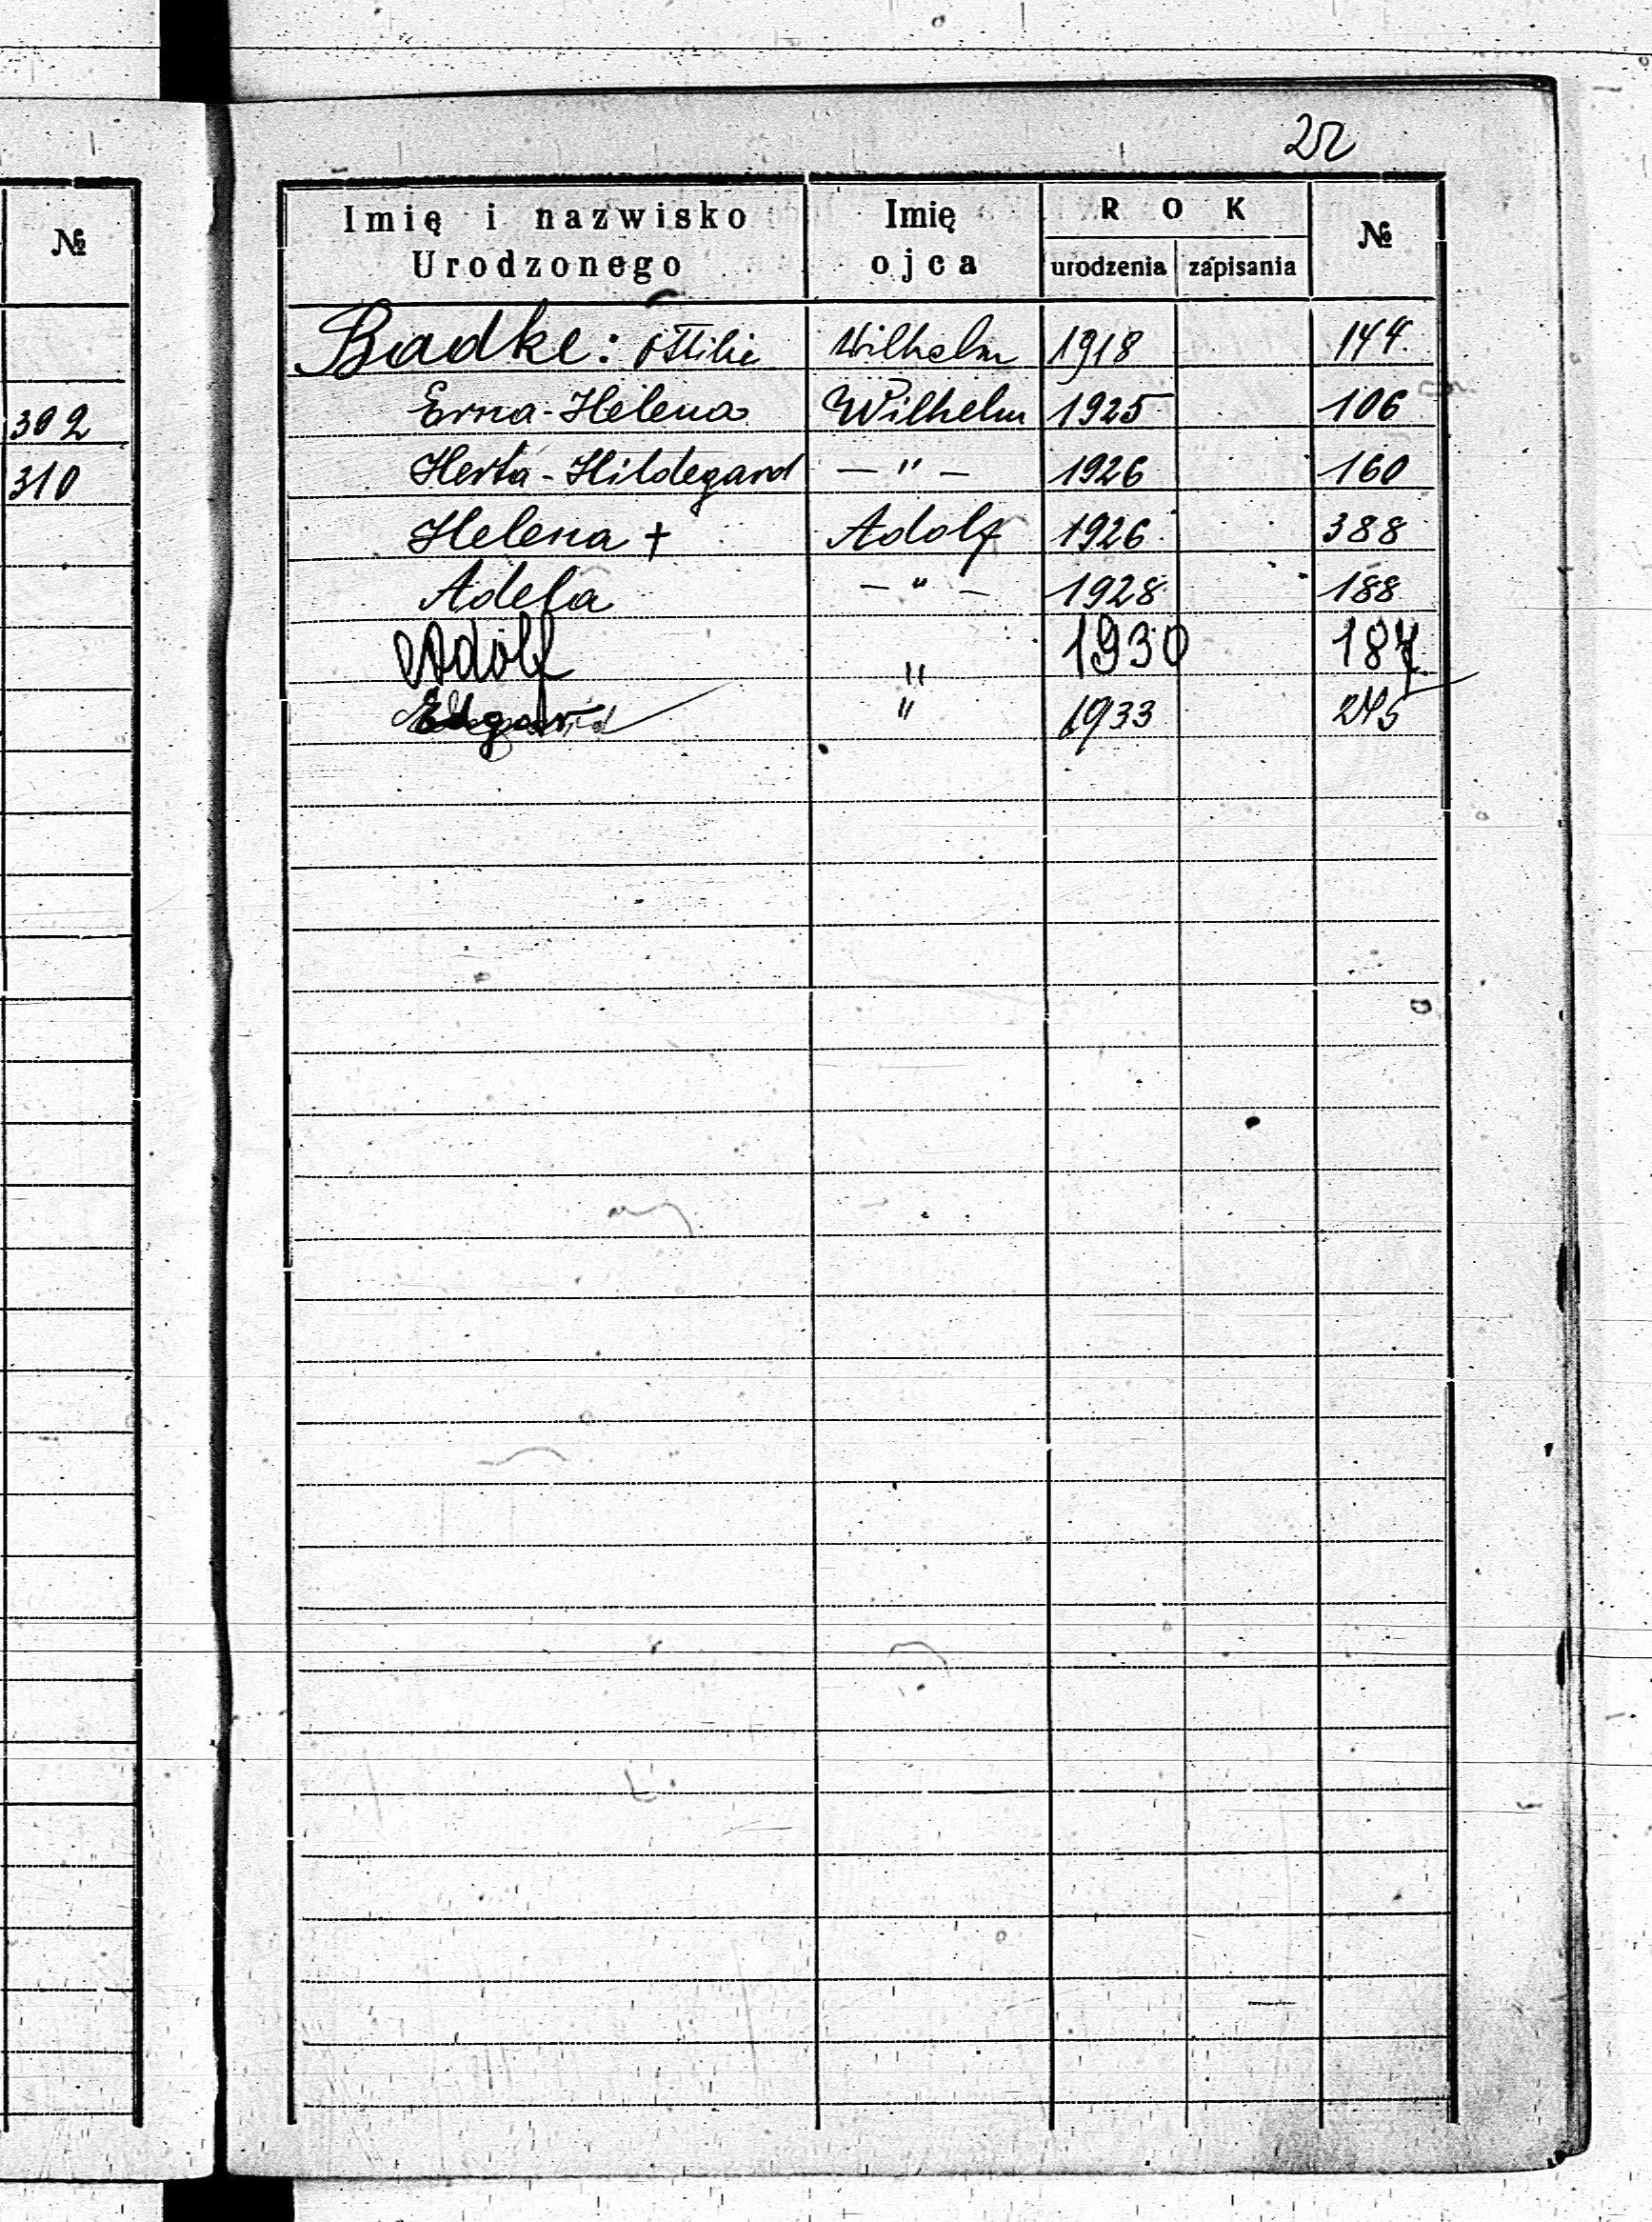 22
№
Imię i nazwisko Urodzonego
Imię ojca
ROK
urodzenia zapisania
№
Badke: Ottilie Wilhelm 1918 144
302
Erna-Helena Wilhelm 1925 106
310
Herta-Hildegard — " — 1926 160
Helena + Adolf 1926 388
Adela — " — 1928 188
Adolf " 1930 187
" 1933 245